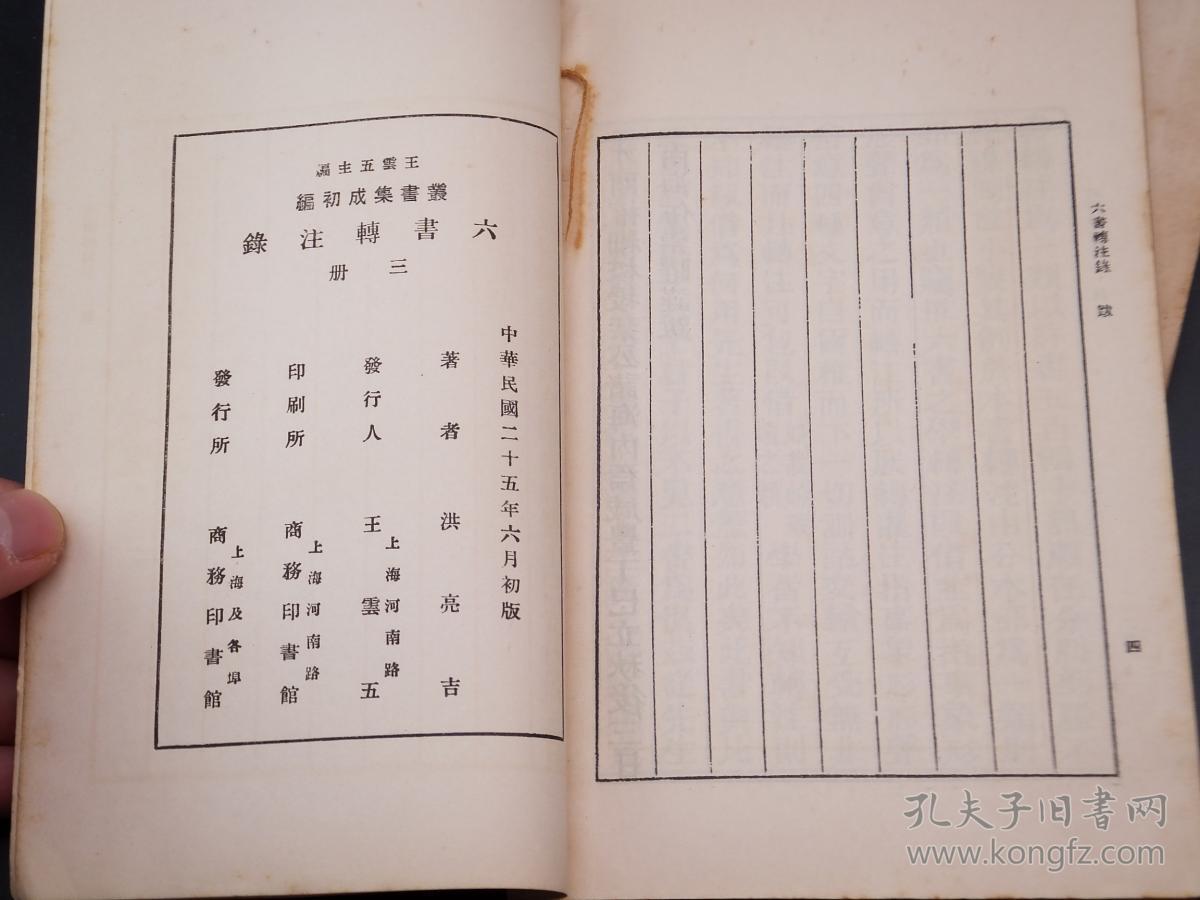 六書轉注錄 跋
四
王雲五主編
叢書集成初編
六書轉注錄
三册
中華民國二十五年六月初版
著者 洪亮吉
發行人 王雲五
上海河南路
印刷所 商務印書館
上海河南路
發行所 商務印書館
上海及各埠
孔夫子旧书网
www.kongfz.com